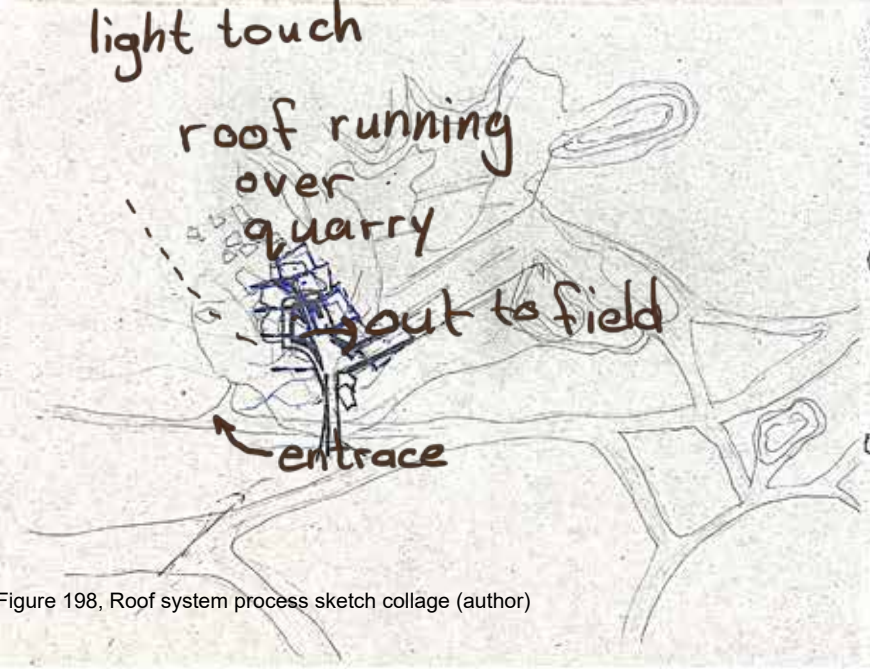 light touch
roof running
over
quarry
out to field
entrace
Figure 198, Roof system process sketch collage (author)